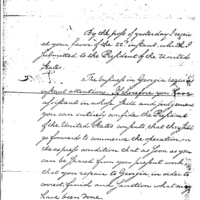 By the post of yesterday I receiv
ed your favor of the 22d instant, which I
submitted to the President of the United
States.
The business in Georgia requires
instant attention. If therefore you have
assistant in whose skill and judgement
you can entirely confide the President
of the United States consents, that they shall
go forward to commence the operation on
the express condition that as soon as you
can be spared from your present work
that you repair to Georgia in order to
correct, finish and sanction what may
have been done